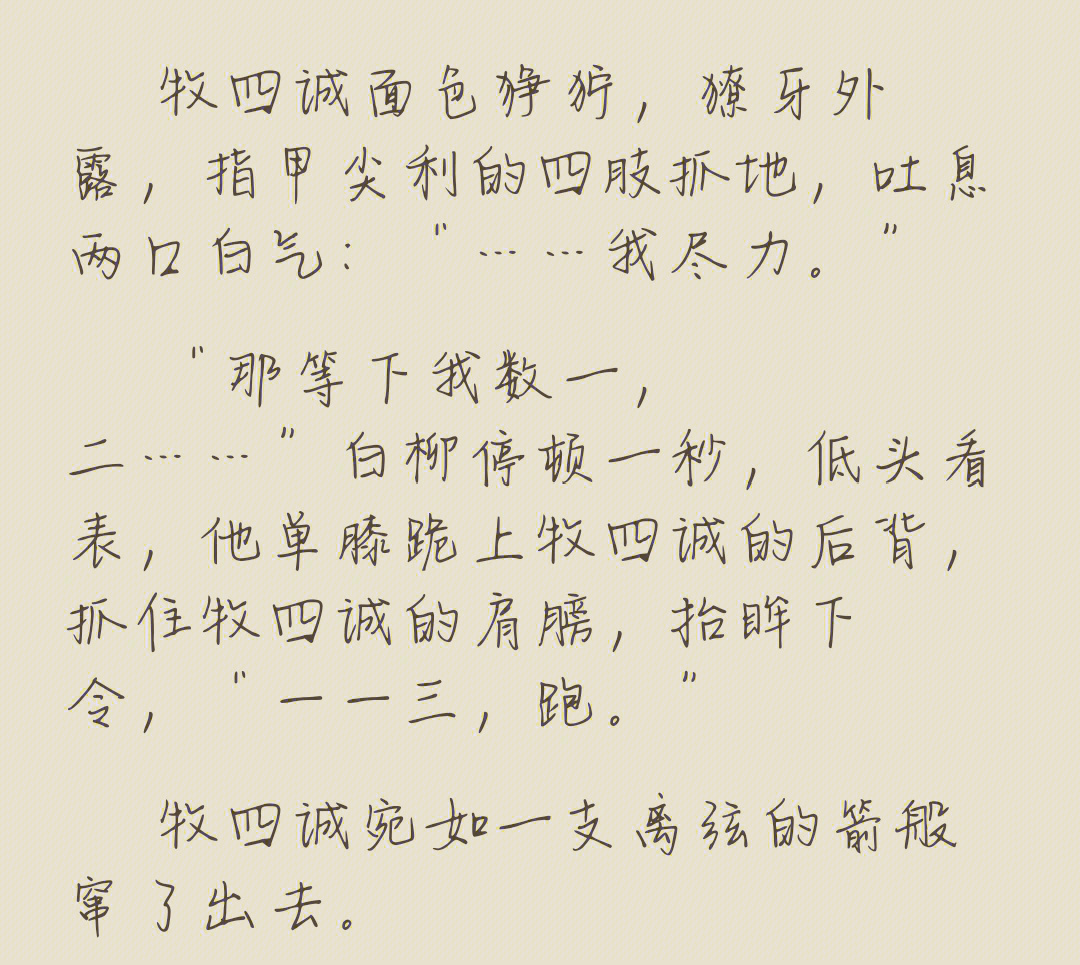 牧四诚面色狰狞，獠牙外
露，指甲尖利的四肢抓地，吐息
两口白气：“……我尽力。”
“那等下我数一，
二……”白柳停顿一秒，低头看
表，他单膝跪上牧四诚的后背，
抓住牧四诚的肩膀，抬眸下
令，“一一三，跑。”
牧四诚宛如一支离弦的箭般
窜了出去。